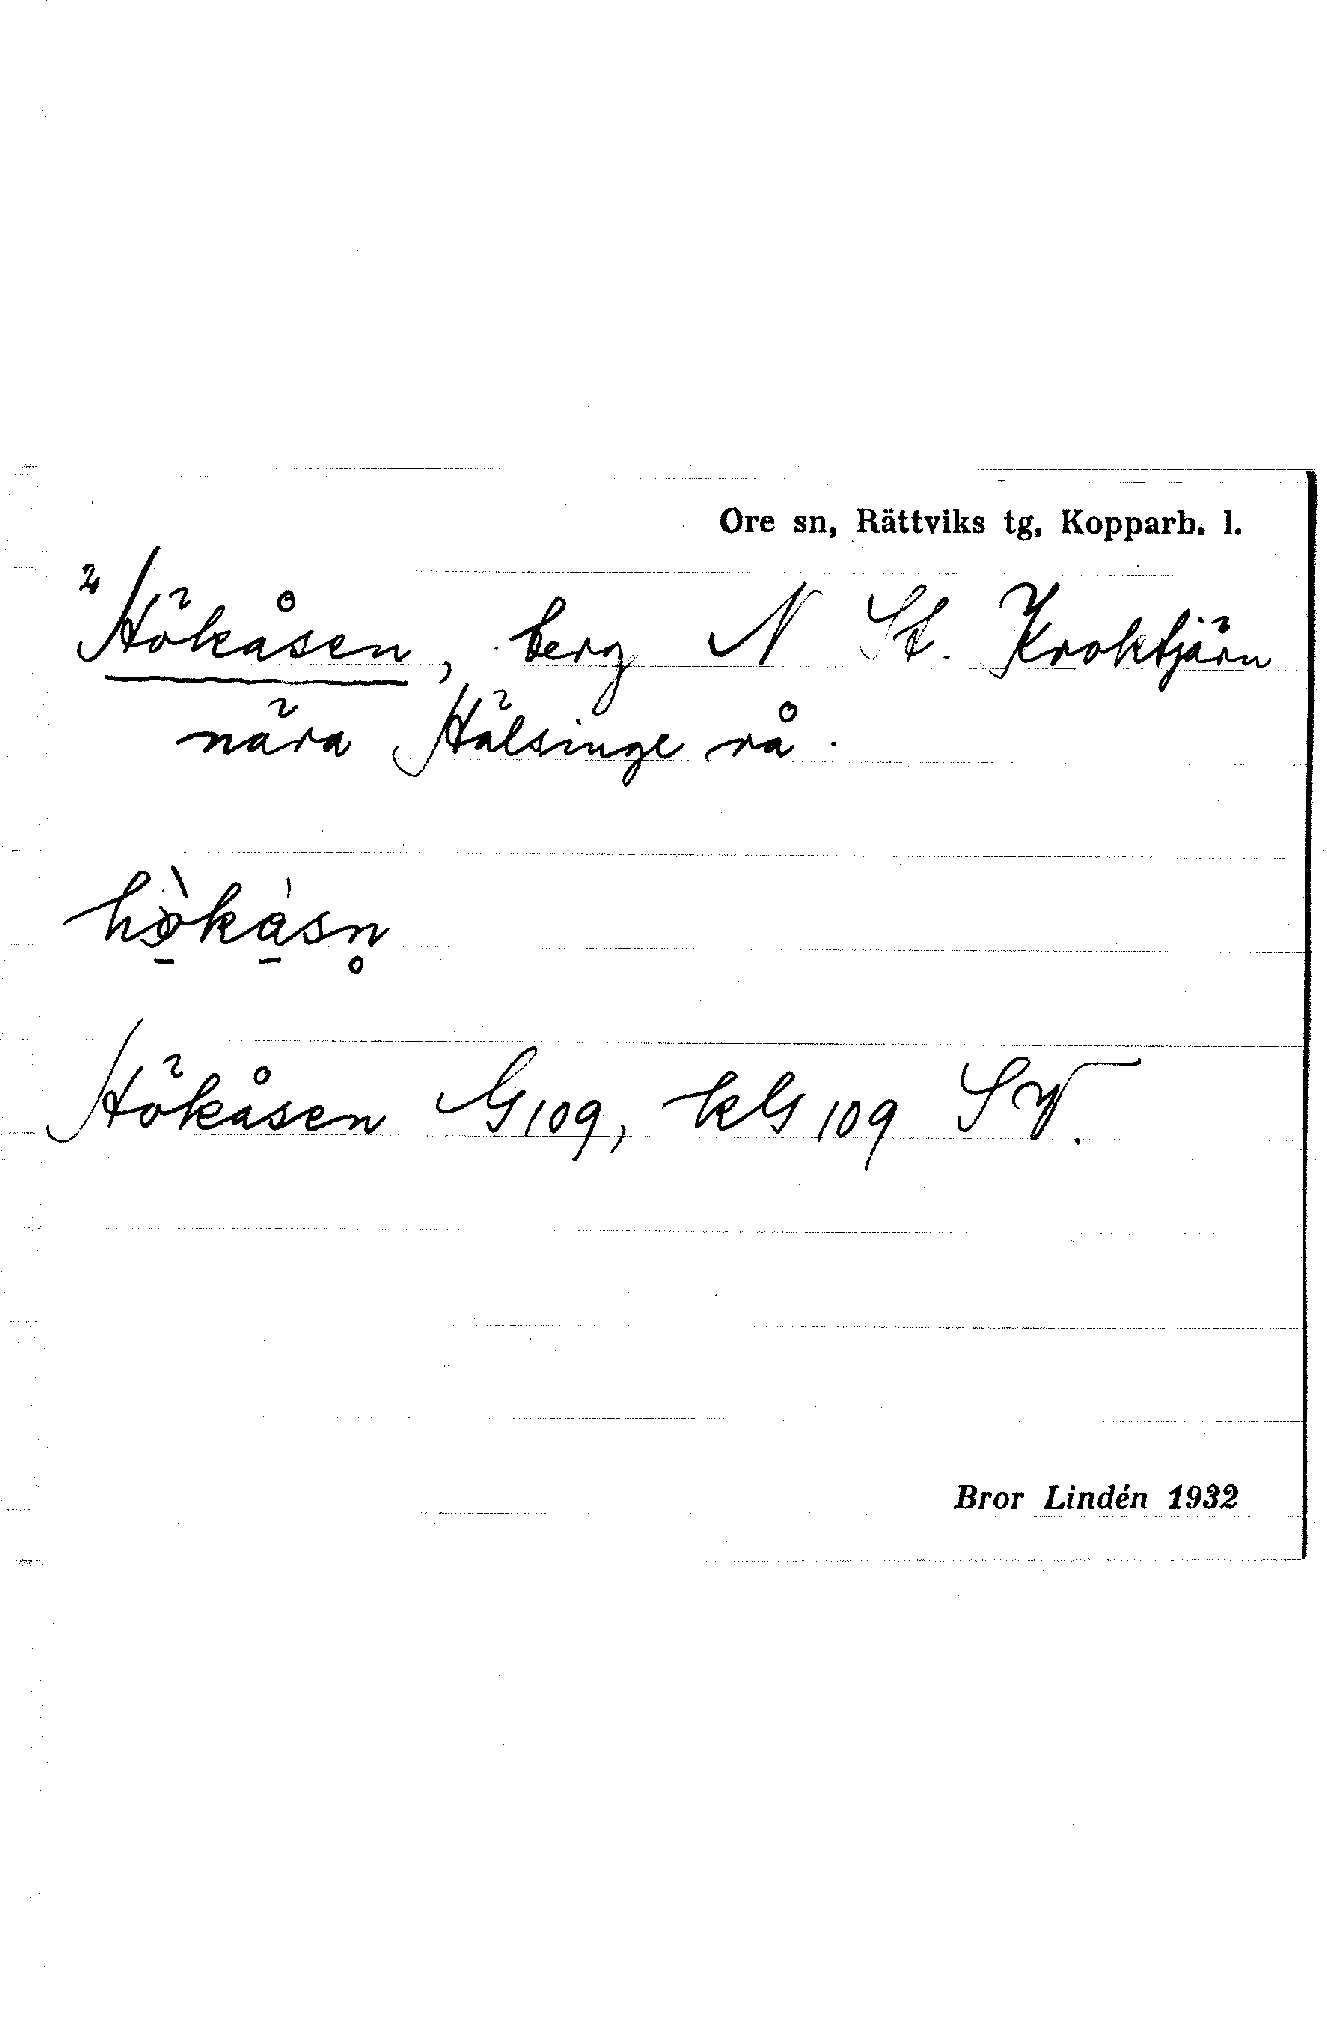 Ore sn, Rättviks tg, Kopparb. l.
² Hökåsen, berg N St. Kroktjärn
nära Hälsinge rå.
Hökåsen G 109, kG 109 SV.
Bror Lindén 1932